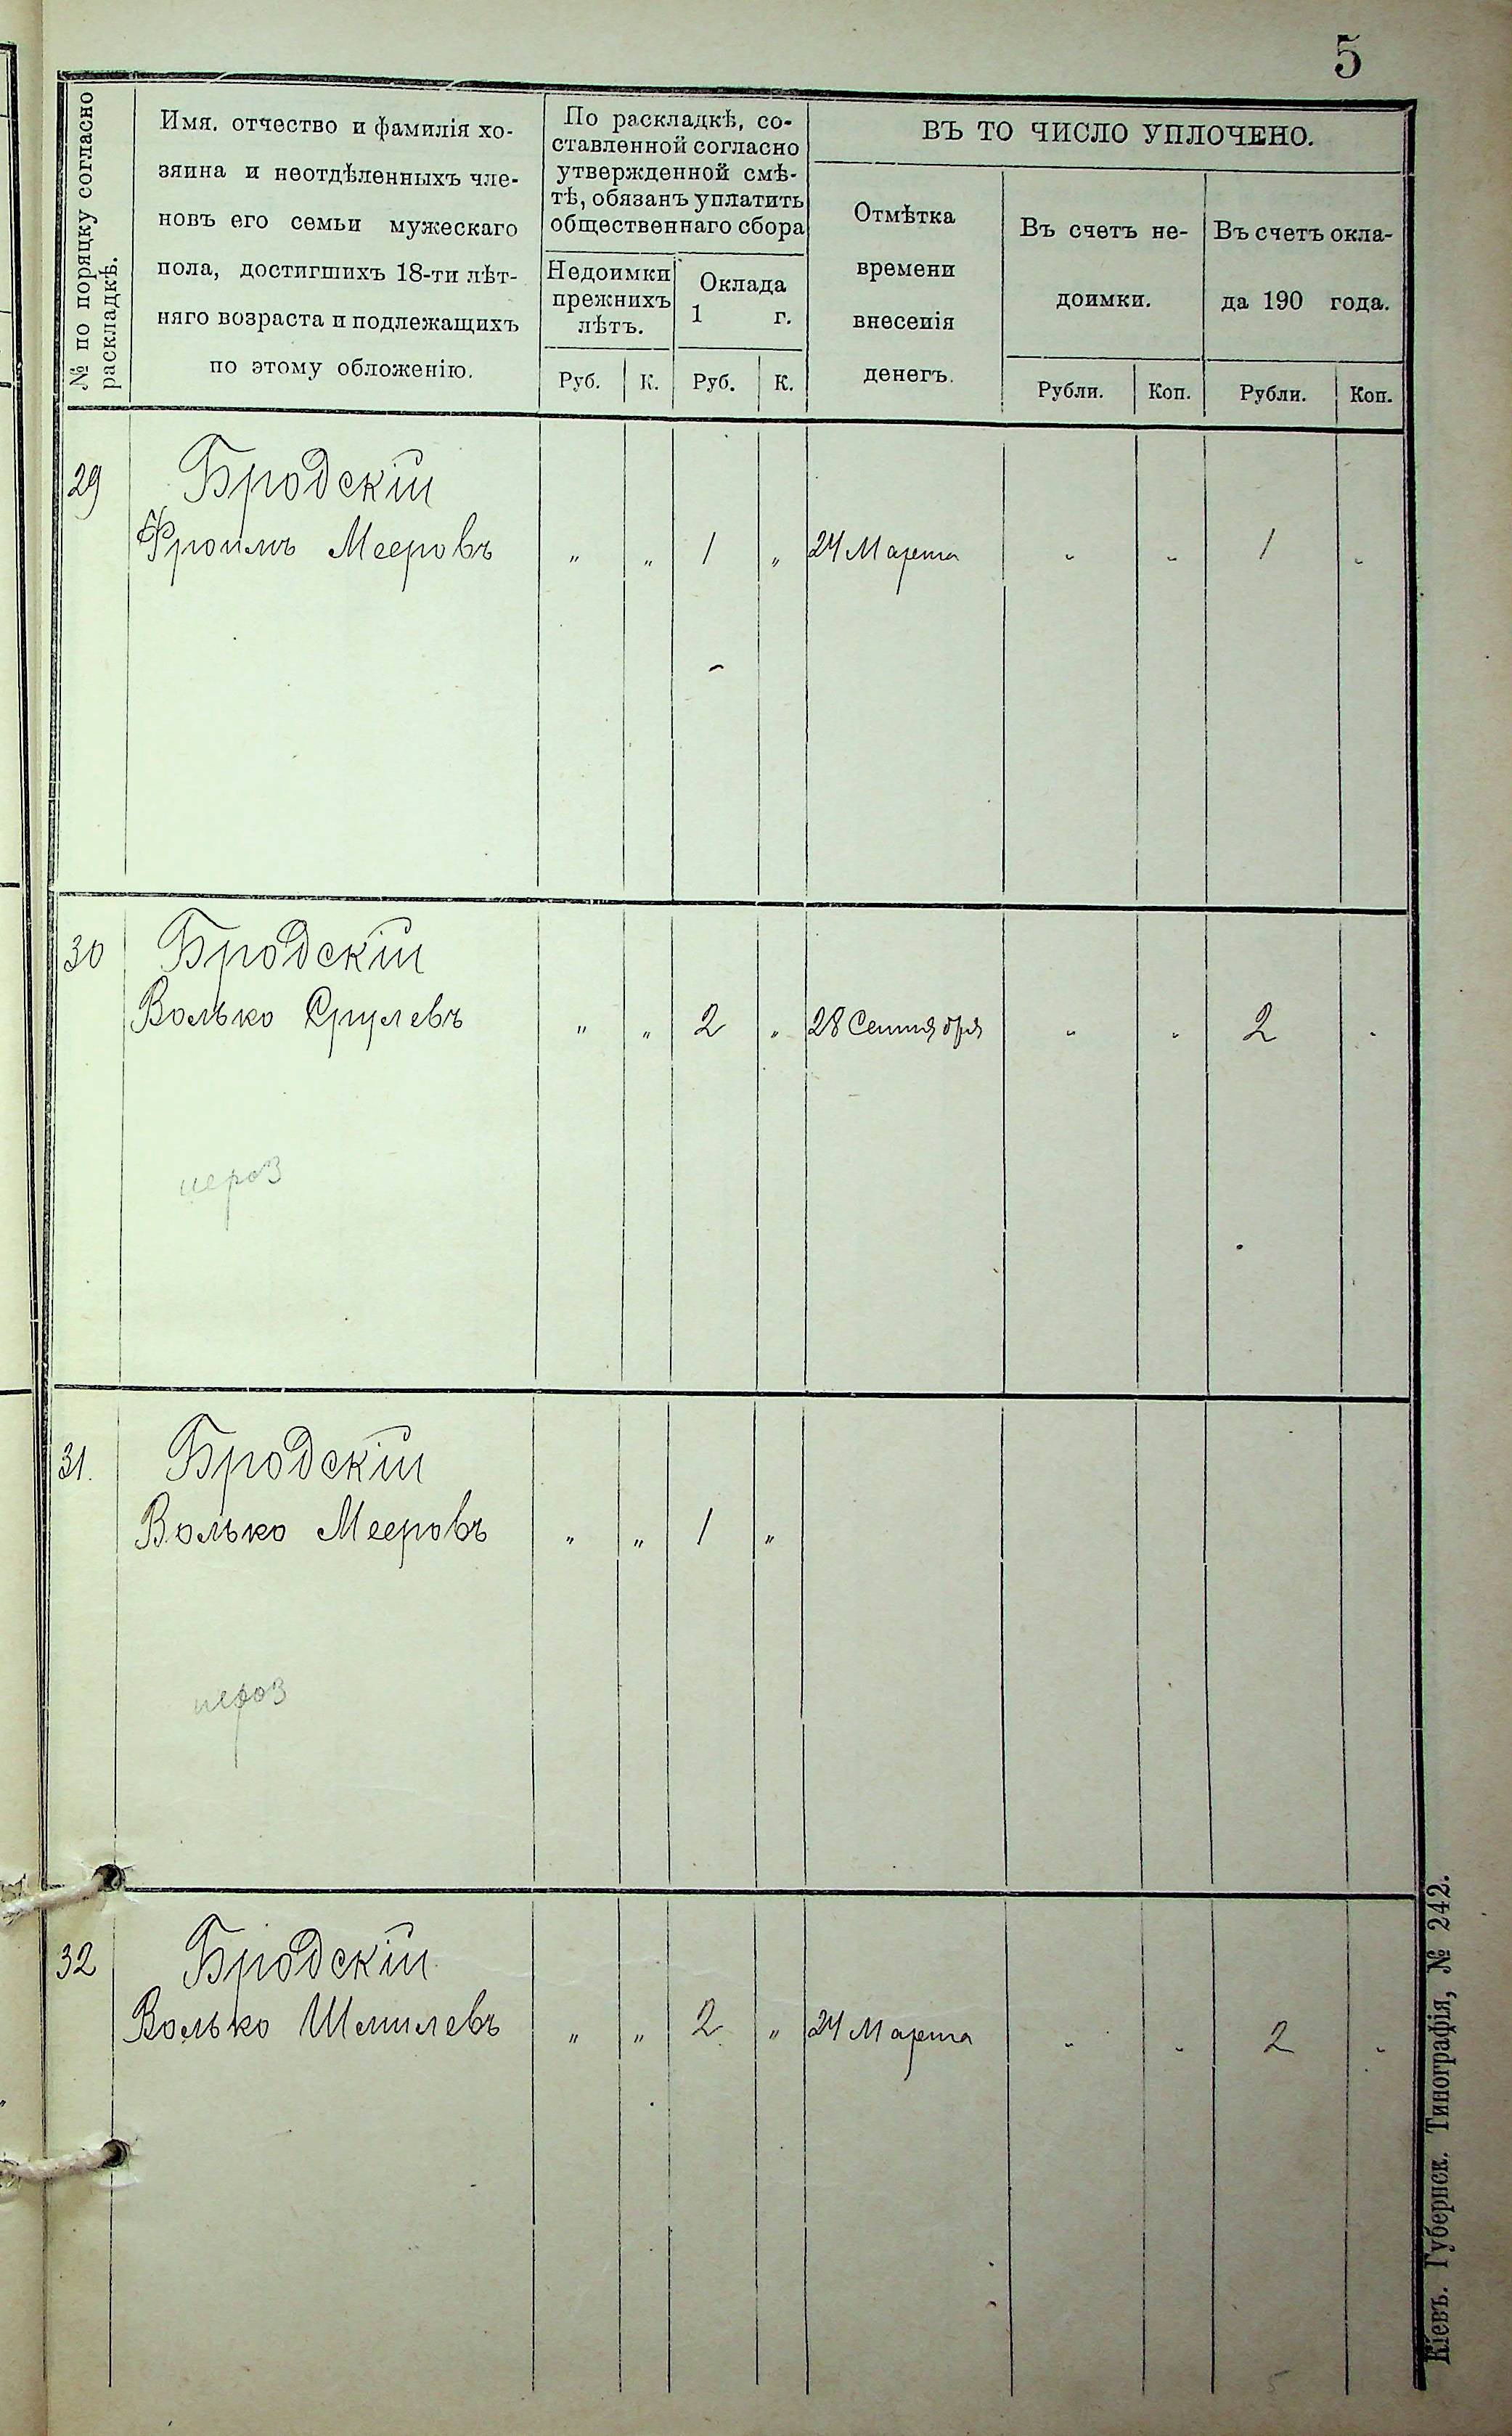 5
№ по порядку согласно
раскладкѣ.
Имя, отчество и фамилія хо-
зяина и неотдѣленныхъ чле-
новъ его семьи мужескаго
пола, достигшихъ 18-ти лѣт-
няго возраста и подлежащихъ
по этому обложенію.
По раскладкѣ, со-
ставленной согласно
утвержденной смѣ-
тѣ, обязанъ уплатить
общественнаго сбора
Недоимки
прежнихъ
лѣтъ.
Оклада
1 г.
Руб. К. Руб. К.
ВЪ ТО ЧИСЛО УПЛОЧЕНО.
Отмѣтка
времени
внесенія
денегъ.
Въ счетъ не-
доимки.
Въ счетъ окла-
да 190 года.
Рубли. Коп. Рубли. Коп.
29 Бродскій
Фроимъ Мееровъ „ „ 1 „ 24 Марта „ „ 1 „
30 Бродскій
Волько Срулевъ „ „ 2 „ 28 Сентября „ „ 2 „
31. Бродскій
Волько Мееровъ „ „ 1 „
32 Бродскій
Волько Шмилевъ „ „ 2 „ 24 Марта „ „ 2 „
Кіевъ. Губернск. Типографія, № 242.